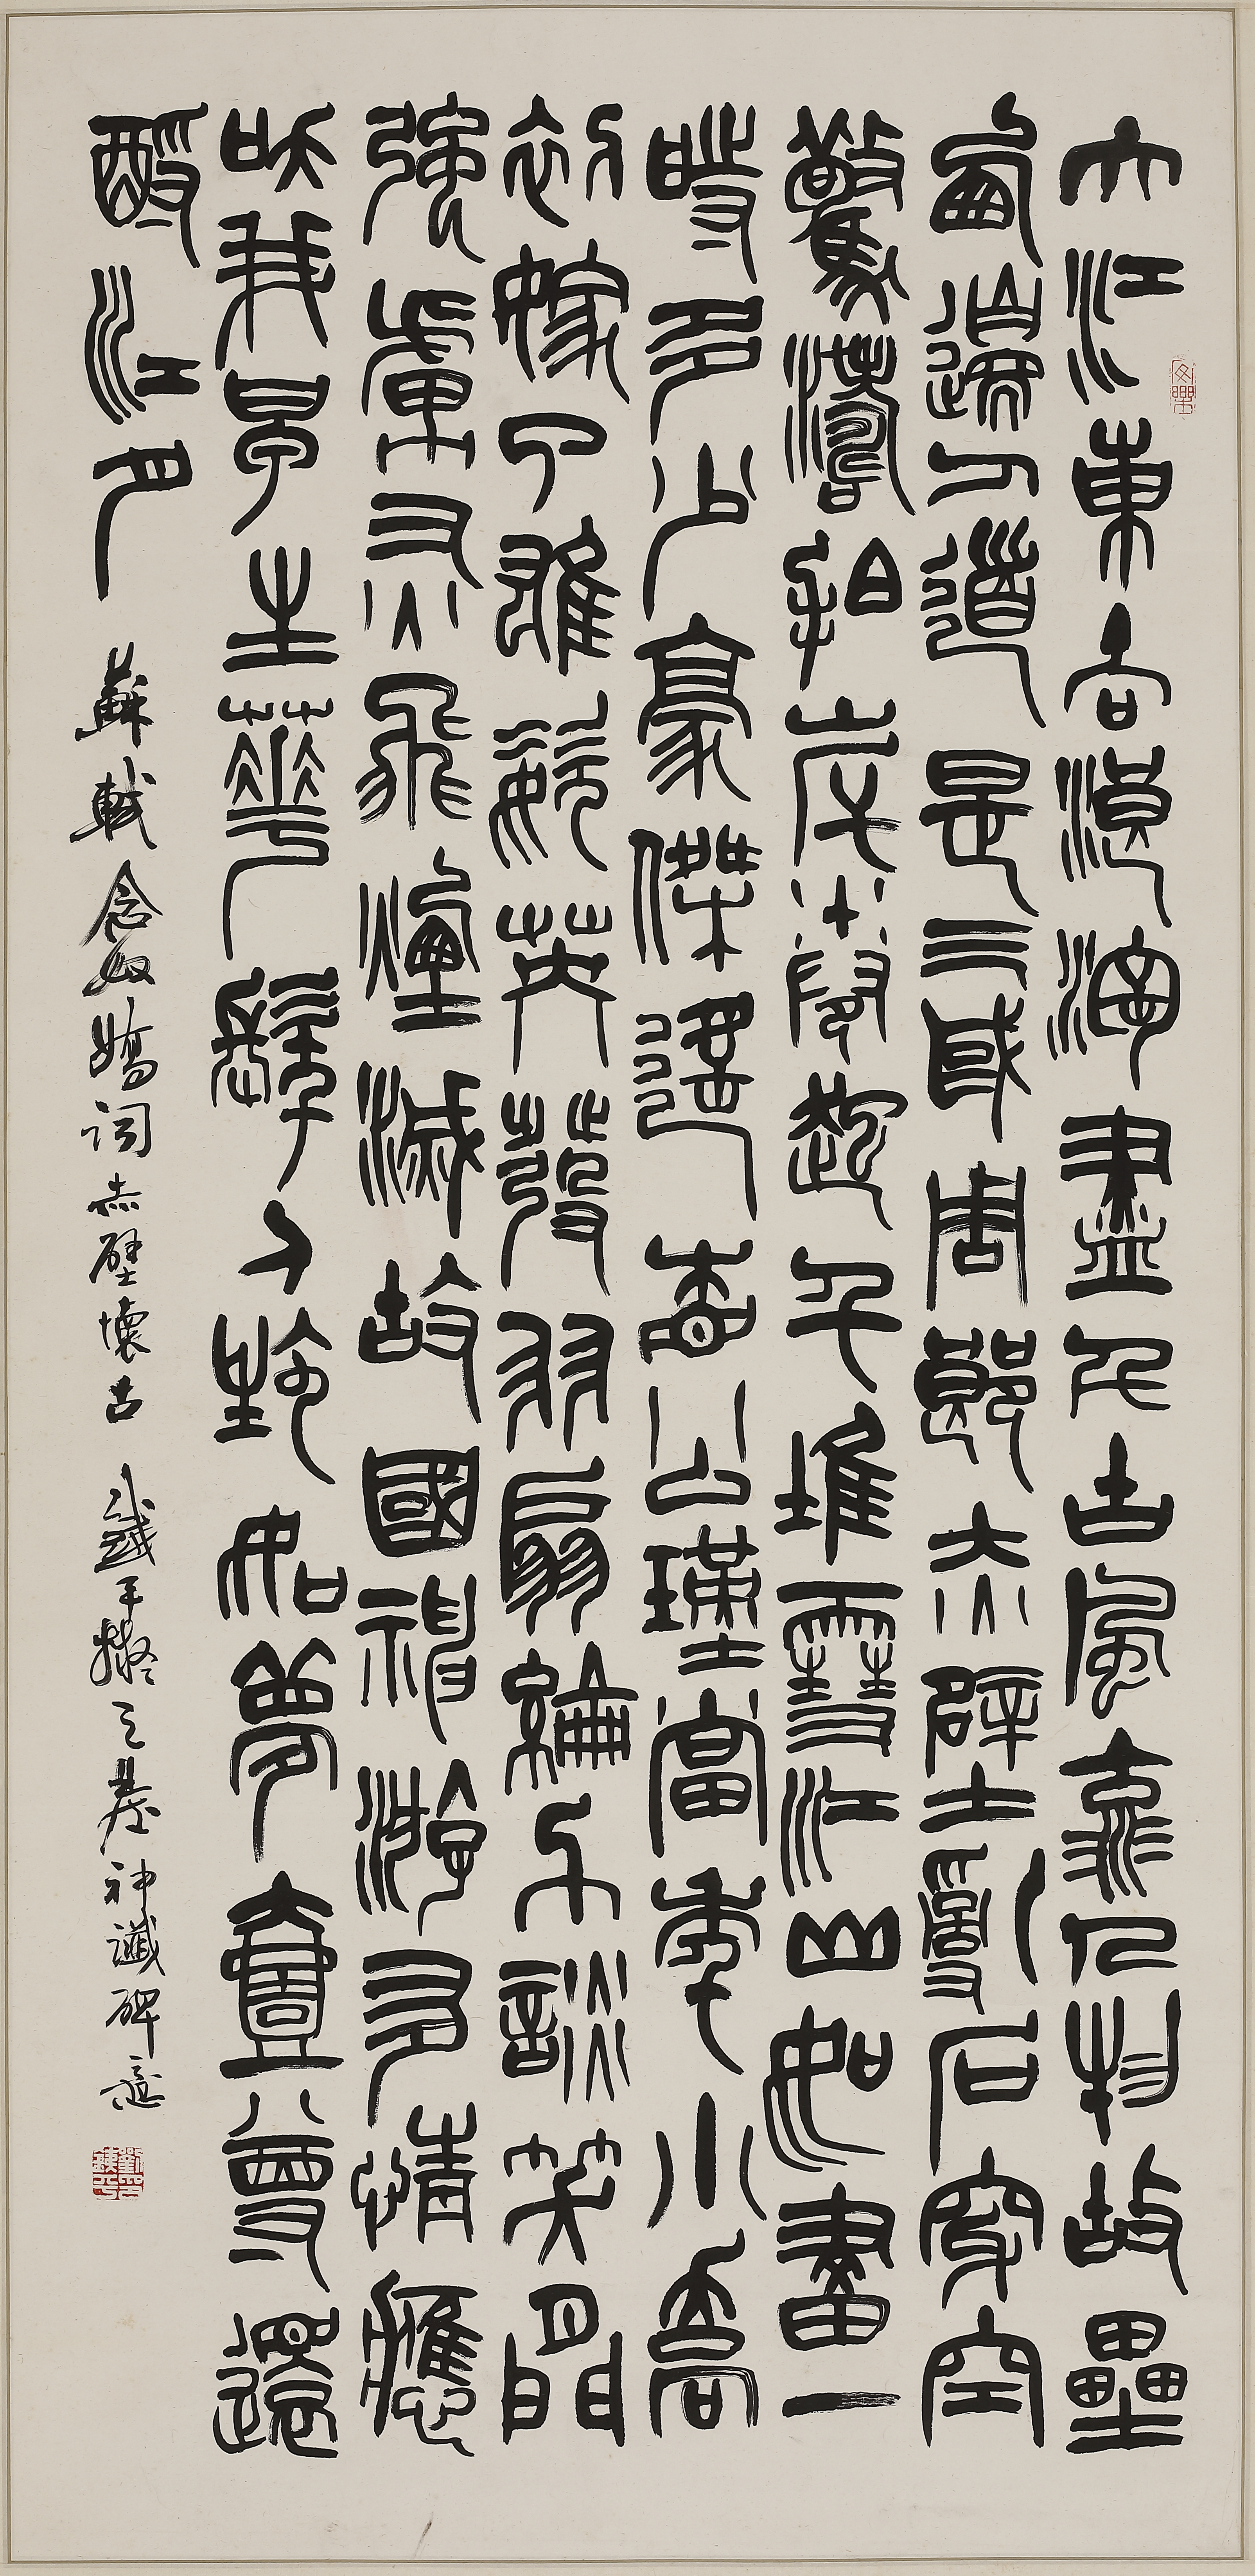 大江東去浪淘盡千古風流人物故壘
西邊人道是三國周郎赤壁亂石穿空
驚濤拍岸捲起千堆雪江山如畫一
時多少豪傑遙想公瑾當年小喬
初嫁了雄姿英發羽扇綸巾談笑間
強虜灰飛煙滅故國神游多情應
笑我早生華髮人生如夢壹尊還
酹江月 蘇軾念奴嬌詞赤壁懷古 鐵平擬天發神讖碑意